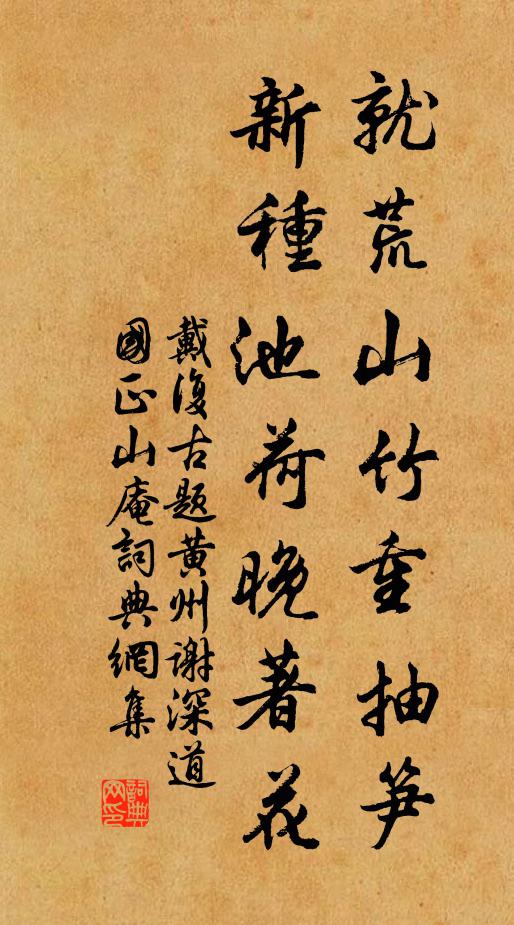 就荒山竹重抽笋
新種池荷晚著花
戴復古题黄州谢深道
國正山庵詞典網集
詞典
网印